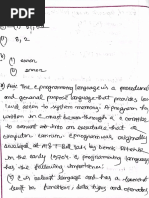 (i) 8, 2
(i) error
(ii) error
Ans The c programming language is a procedural
and general purpose language that provides low
level access to system memory. A program
written in c must be run through a c compiler
to convert it into an executable that a
computer can run. C programming was originally
developed at AT & T Bell Labs by Dennis Ritchie
in the early 1970s. C programming language has
the following importance:
(i) C is robust language and has a
built in functions, data types and operators